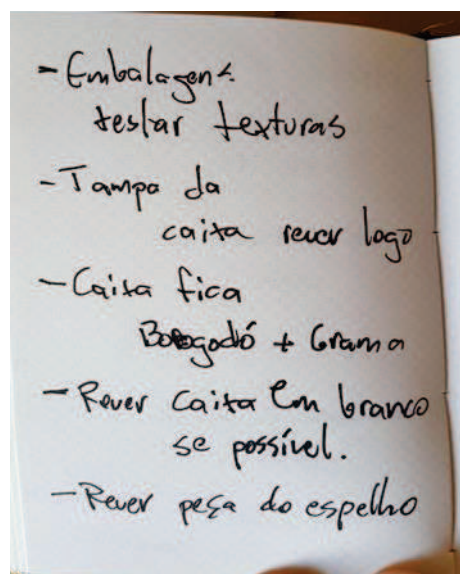 - Embalagens
testar texturas
- Tampa da
caixa rever logo
- Caixa fica
Borogodó + Grama
- Rever Caixa em branco
se possível.
- Rever peça do espelho